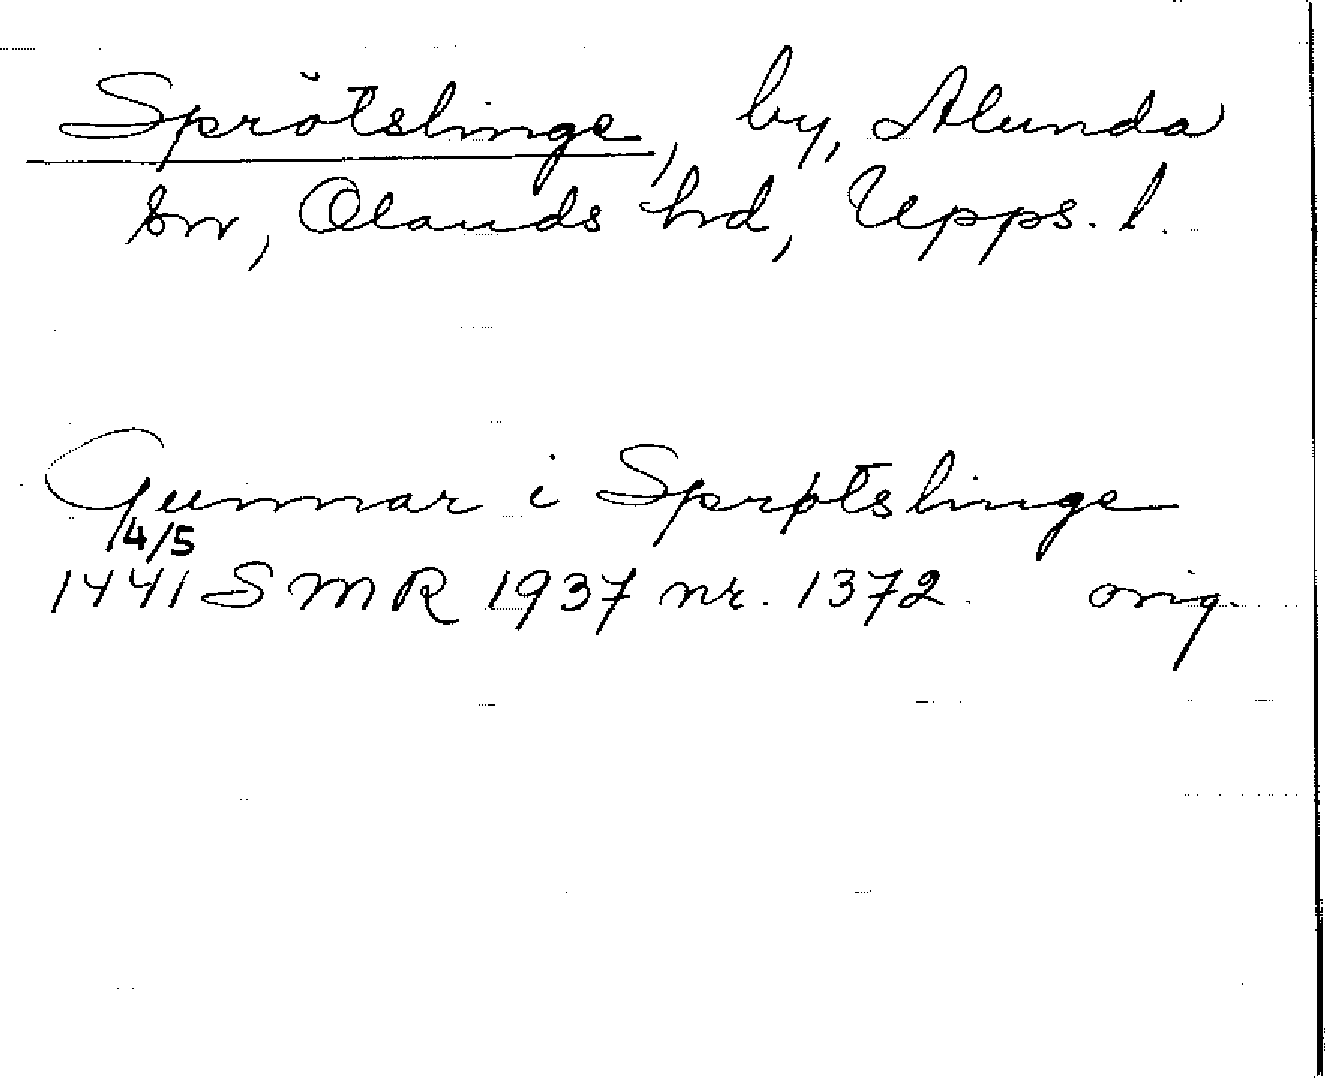 Sprötslinge, by, Alunda
sn, Olands hd, Upps. l.
Gunnar i Sprøtslinge
4/5
1441 SMR 1937 nr. 1372. orig.